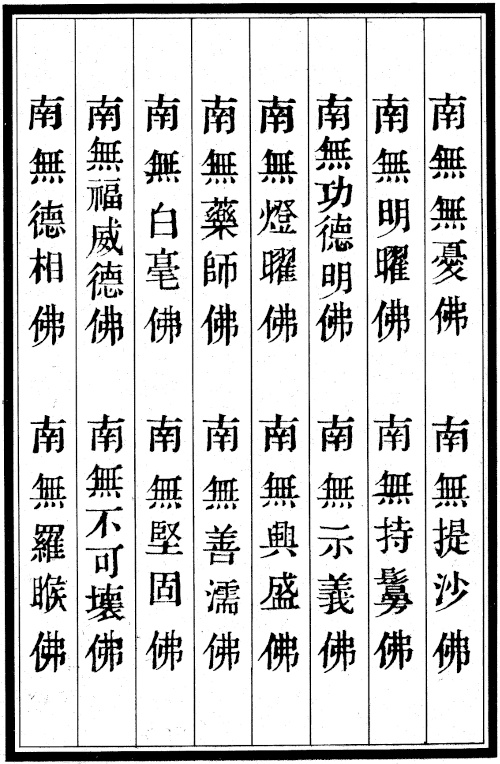 南無無憂佛　南無提沙佛
南無明曜佛　南無持鬘佛
南無功德明佛　南無示義佛
南無燈曜佛　南無興盛佛
南無藥師佛　南無善濡佛
南無白毫佛　南無堅固佛
南無福威德佛　南無不可壞佛
南無德相佛　南無羅睺佛